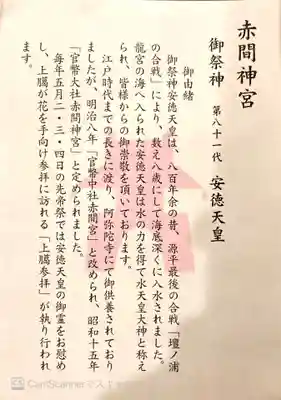 赤間神宮
御祭神　第八十一代　安徳天皇
御由緒
御祭神安徳天皇は、八百年余の昔、源平最後の合戦「壇ノ浦
の合戦」により、数え八歳にして海底深くに入水されました。
龍宮の海へ入られた安徳天皇は水の力を得て水天皇大神と称え
られ、皆様からの御崇敬を頂いております。
江戸時代までの長きに渡り、阿弥陀寺にて御供養されており
ましたが、明治八年「官幣中社赤間宮」と改められ、昭和十五年
「官幣大社赤間神宮」と定められました。
毎年五月二・三・四日の先帝祭では安徳天皇の御霊をお慰め
し、上臈が花を手向け参拝に訪れる「上臈参拝」が執り行われ
ます。
CamScannerでス